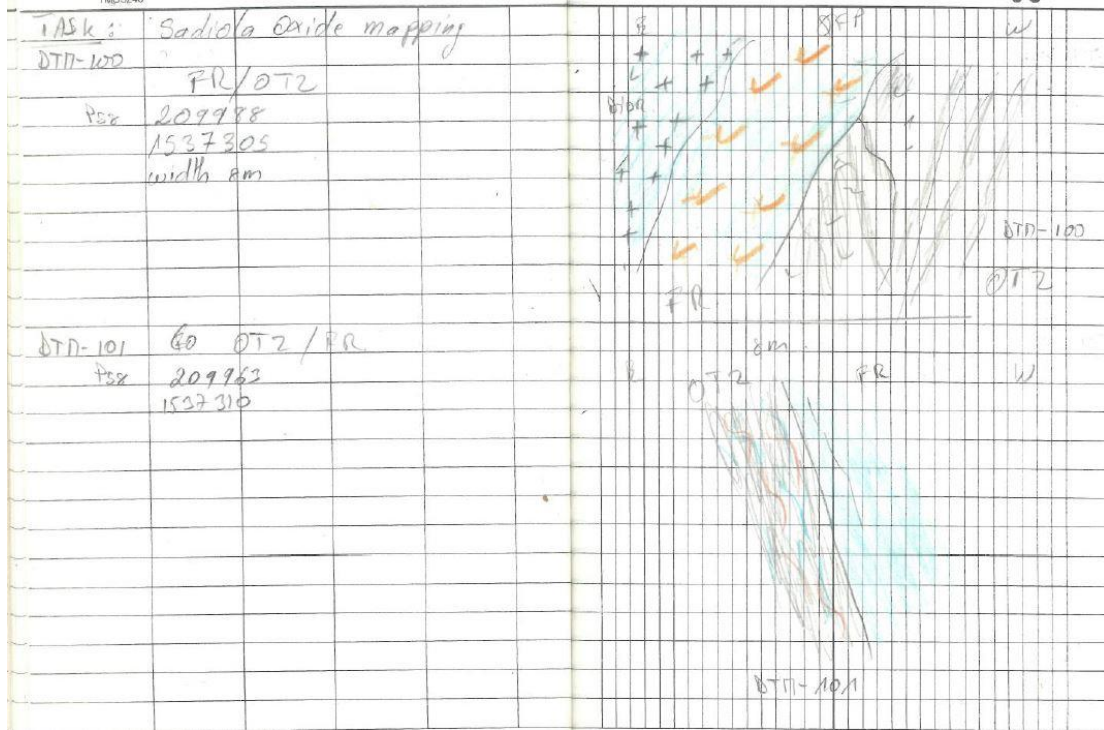 TASK : Sadiola Oxide mapping
DTM-100
FR/OTZ
Pos 209988
1537305
width 8m
DTM-101 Go OTZ / FR
Pos 209963
1537310
E QFP W
DTM-100
OTZ
FR
8m
E OTZ FR W
DTM-101